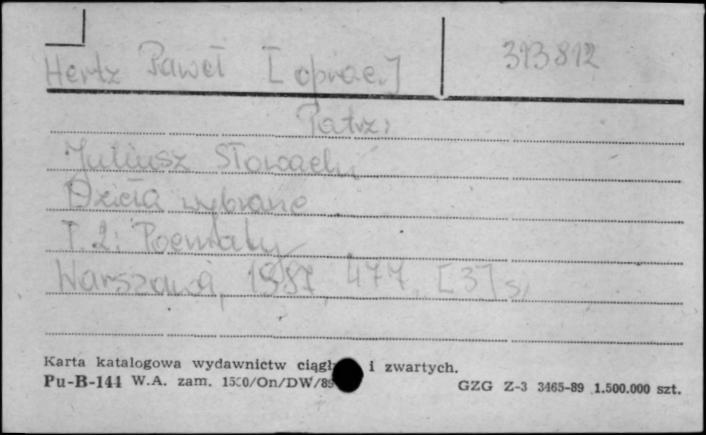 Hertz Paweł [oprac.] 313812
Patrz:
Juliusz Słowacki
Dzieła wybrane
T. 2: Poematy
Warszawa, 1987, 477, [3] s.
Karta katalogowa wydawnictw i zwartych.
Pu-B-144 W.A. zam. /On/DW/89 GZG Z-3 3465-89 1.500.000 szt.